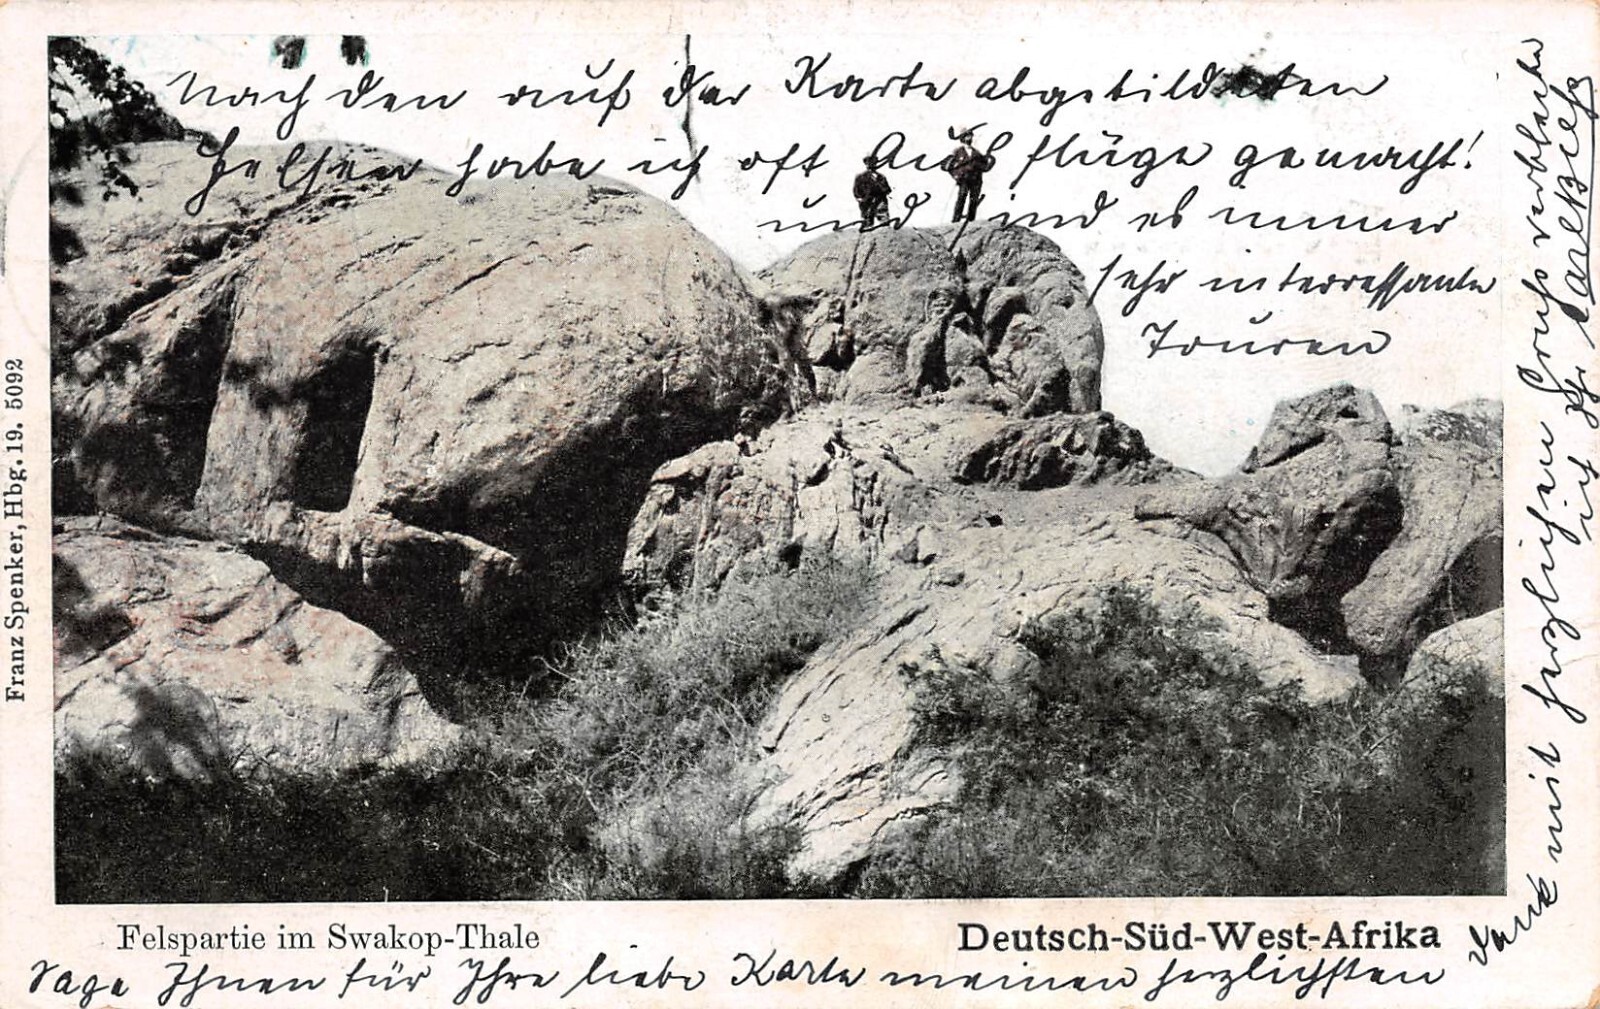 Nach den auf der Karte abgebildeten
Felsen habe ich oft Ausflüge gemacht!
und sind es immer
sehr interressante
Touren
Franz Spenker, Hbg. 19. 5092
Felspartie im Swakop-Thale
Deutsch-Süd-West-Afrika
Sage Ihnen für Ihre liebe Karte meinen herzlichsten
Dank mit herzlichem Gruß verbleibe
ich Ihr Carl